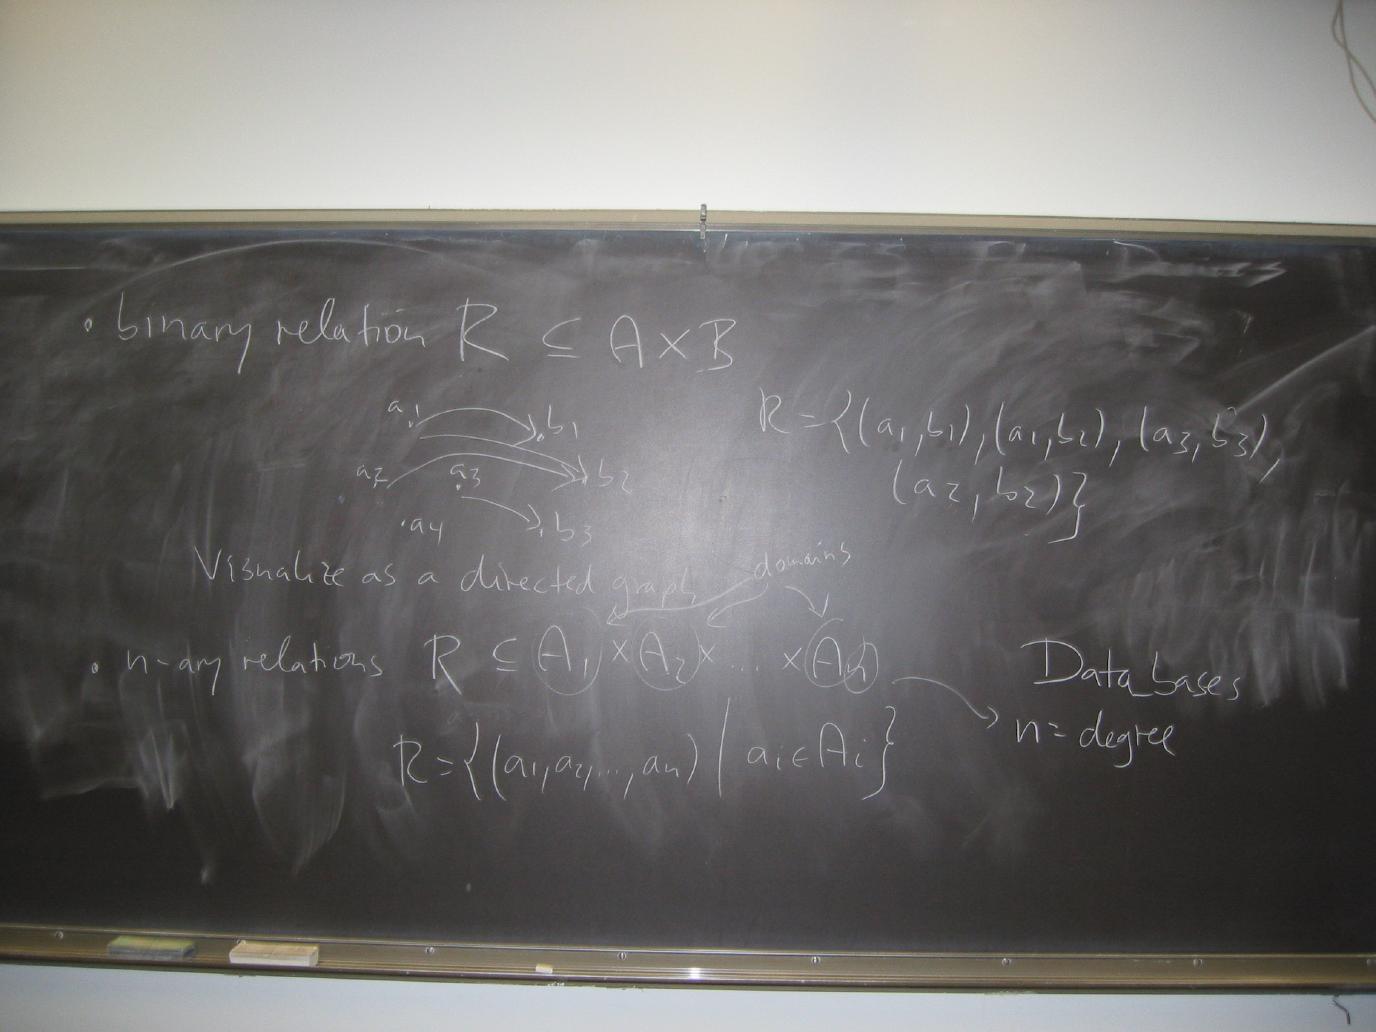 • binary relation R ⊆ A×B
a1 b1
R={(a1,b1),(a1,b2),(a3,b3),
a2 a3 b2
(a2,b2)}
•a4 b3
domains
Visualize as a directed graph
• n-ary relations R ⊆ A1×A2×...×An
Databases
n=degree
R={(a1,a2,...,an) | ai∈Ai}